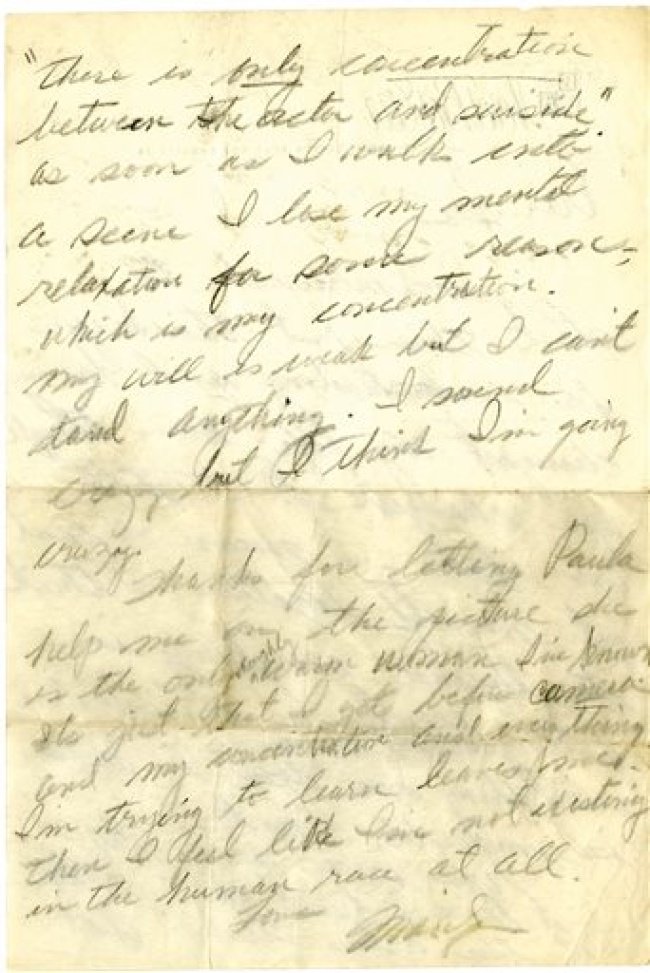 "there is only concentration
between the actor and suiside"
as soon as I walk into
a scene I lose my mental
relaxation for some reason,
which is my concentration.
my will is weak but I can't
stand anything. I sound
crazy but I think I'm going
crazy.
Thanks for letting Paula
help me on the picture she
is the only warm woman I've known
Its just that I get before camera
and my concentration and everything
I'm trying to learn leaves me.
then I feel like I'm not existing
in the human race at all.
Love